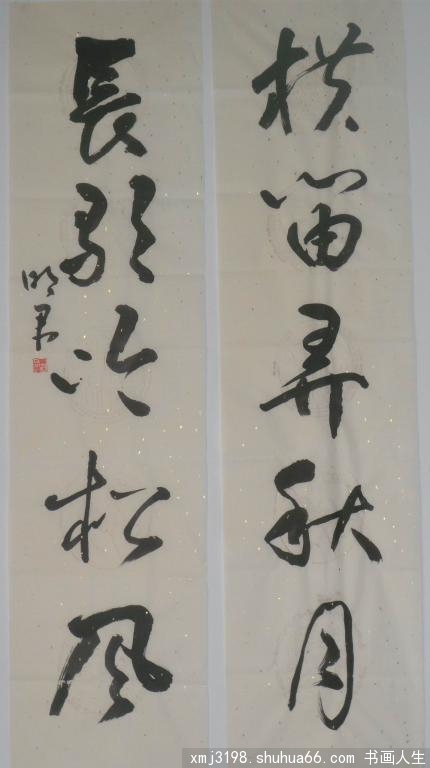 橫笛弄秋月
長歌吟松風
明君
xmj3198.shuhua66.com 书画人生